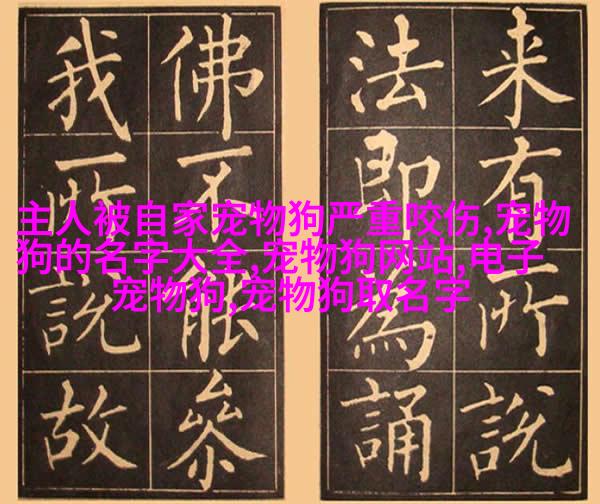 主人被自家宠物狗严重咬伤,宠物
狗的名字大全,宠物狗网站,电子
宠物狗,宠物狗取名字
来有所說
法即為誦
佛不能參
我所說故